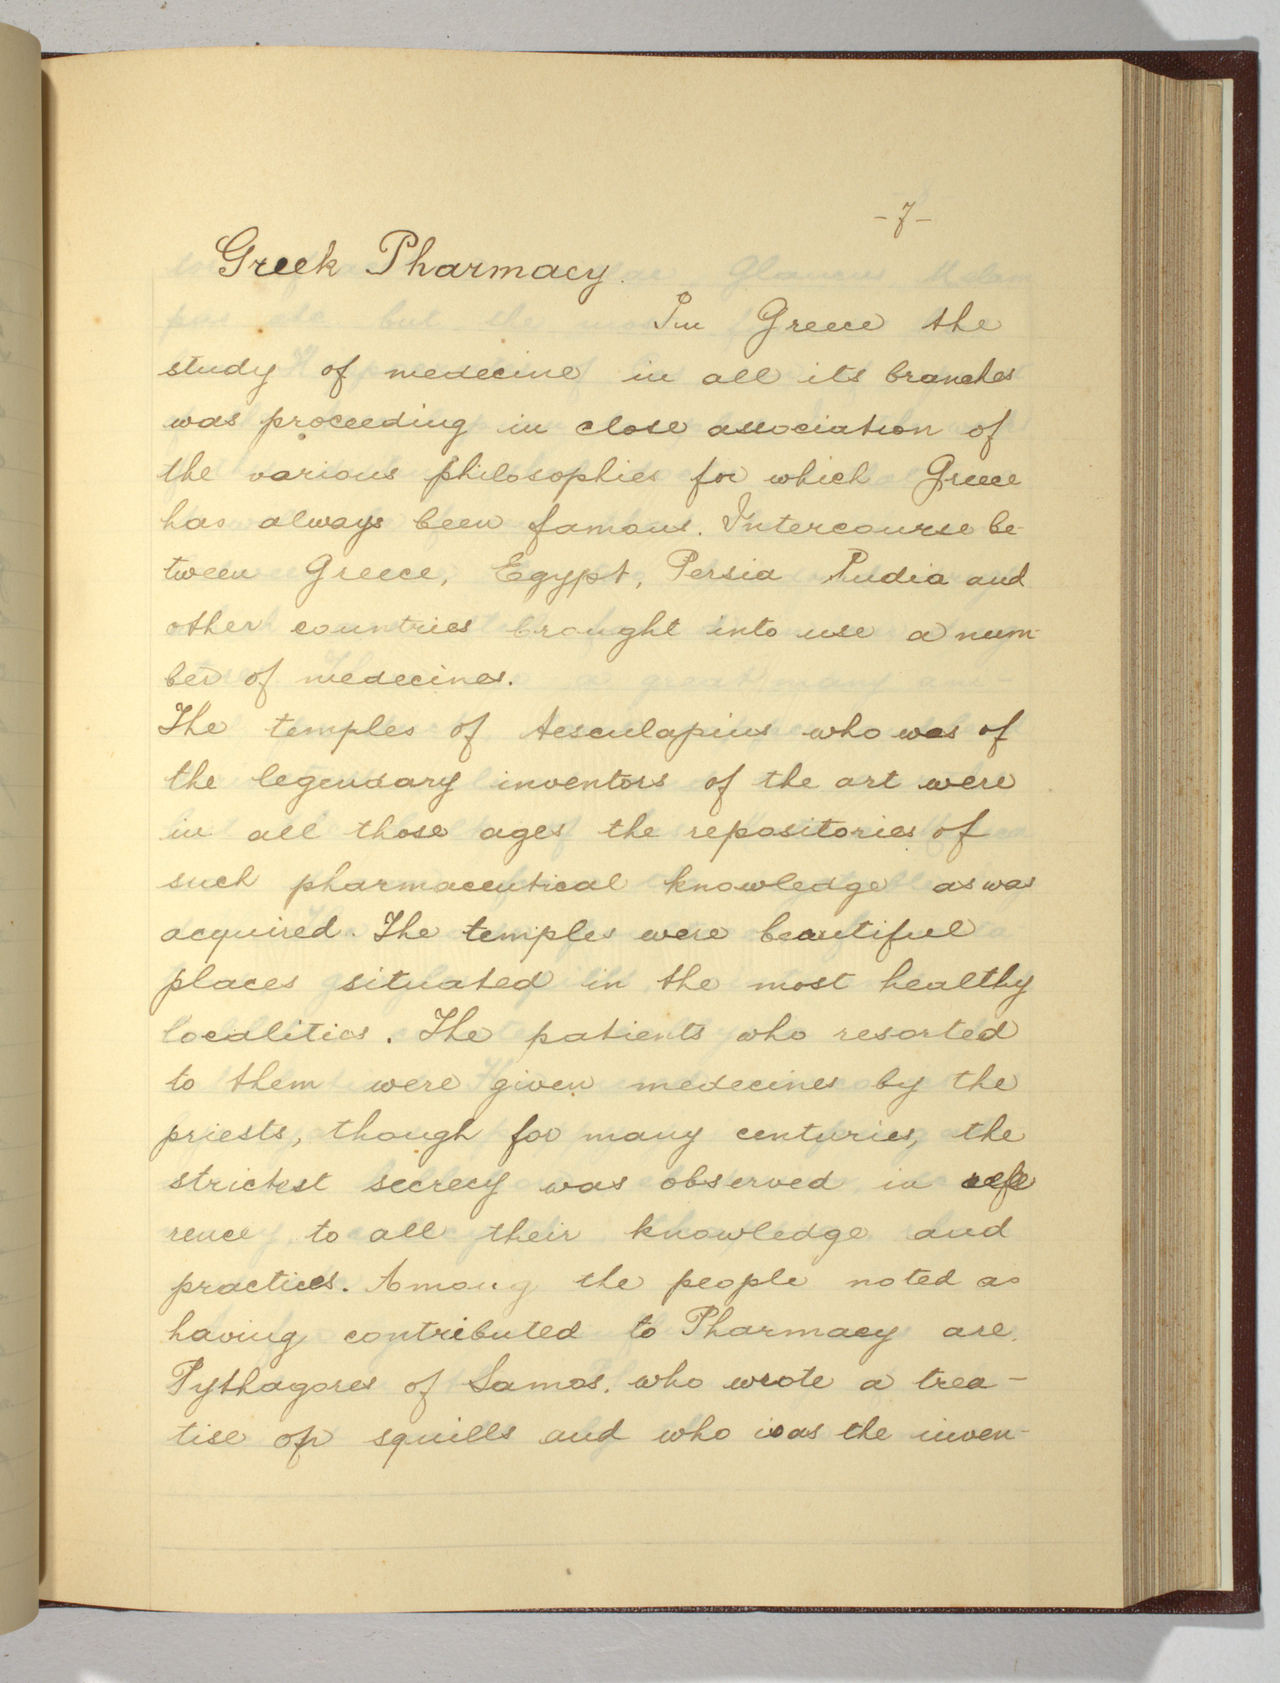 -7-
Greek Pharmacy.
In Greece the
study of medecine in all its branches
was proceeding in close association of
the various philosophies for which Greece
has always been famous. Intercourse be-
tween Greece, Egypt, Persia India and
other countries brought into use a num-
ber of medecines.
The temples of Aesculapius who was of
the legendary inventors of the art were
in all those ages the repositories of
such pharmaceutical knowledge as was
acquired. The temples were beautiful
places situated in the most healthy
localities. The patients who resorted
to them were given medecines by the
priests, though for many centuries, the
strictest secrecy was observed in refe
rence to all their knowledge and
practices. Among the people noted as
having contributed to Pharmacy are.
Pythagores of Samos. who wrote a trea-
tise of squills and who was the inven-